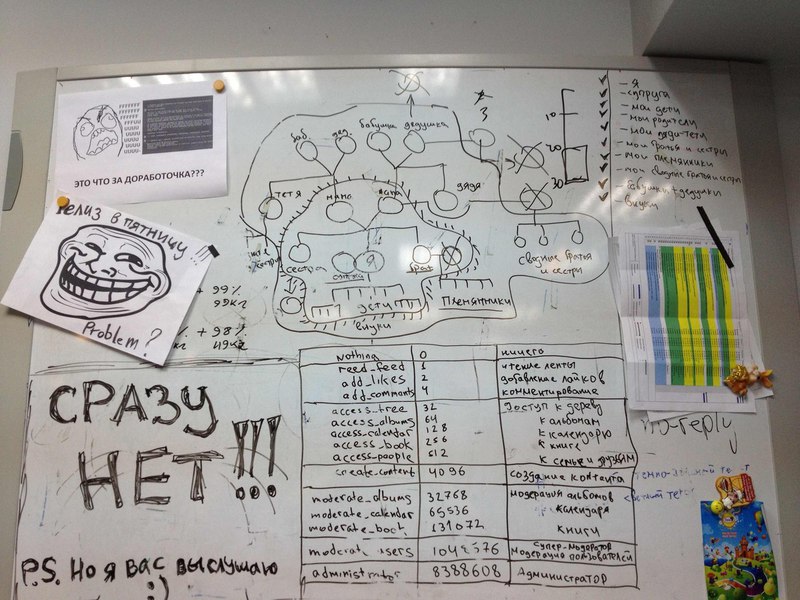 ЭТО ЧТО ЗА ДОРАБОТОЧКА???
РЕЛИЗ В ПЯТНИЦУ !!!
Problem?
+ 99%
99кг
+ 98%
49кг
СРАЗУ
НЕТ!!!
P.S. Но я вас выслушаю
:)
3
баб
дед
бабушка
дедушка
тётя
мама
папа
дядя
сестра
я
брат
дети
внуки
племянники
сводные братья
и сестры
10
20
30
- Я
- супруга
- мои дети
- мои родители
- мои дяди-тёти
- мои братья и сестры
- мои племянники
- мои сводные братья и сестры
- бабушки + дедушки
- внуки
Nothing 0 ничего
reed_feed 1 чтение ленты
add_likes 2 добавление лайков
add_comments 4 комментирование
access_tree 32 Доступ к дереву
access_albums 64 к альбомам
access_calendar 128 к календарю
access_book 256 к книге
access_people 512 к семье и друзьям
create_content 4096 создание контента
moderate_albums 32768 модерация альбомов
moderate_calendar 65536 календаря
moderate_book 131072 книги
moderate_users 1048576 супер-модератор
модерация пользователей
administrator 8388608 Администратор
no-reply